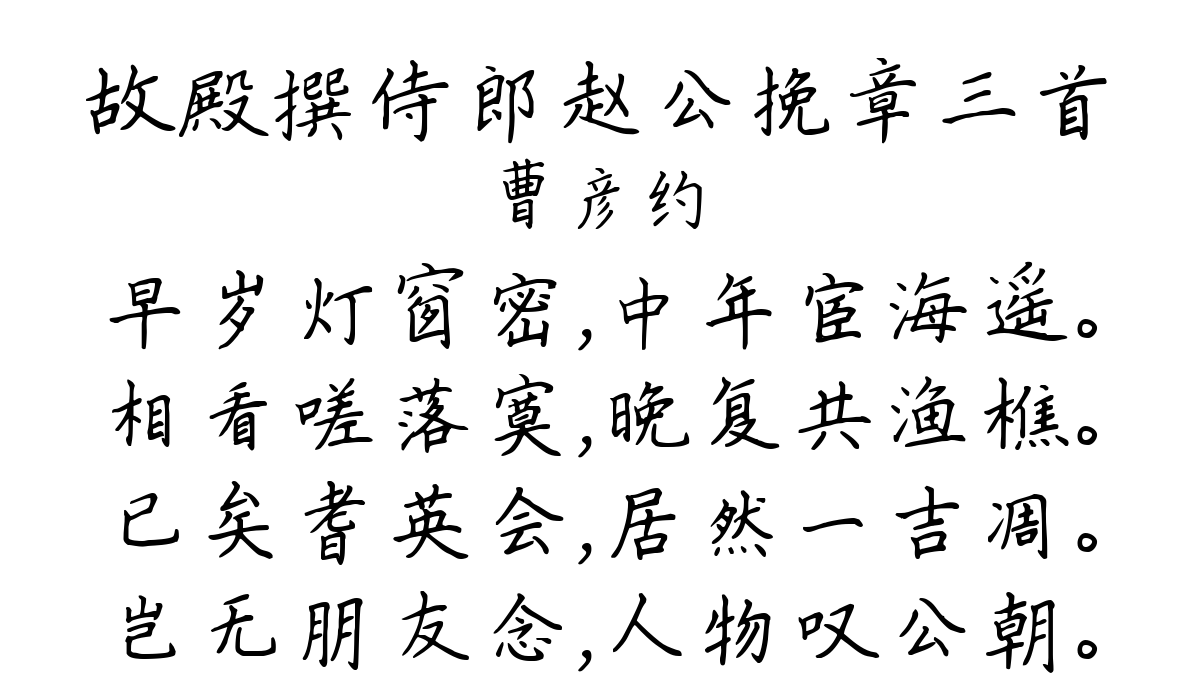 故殿撰侍郎赵公挽章三首
曹彦约
早岁灯窗密,中年宦海遥。
相看嗟落寞,晚复共渔樵。
已矣耆英会,居然一吉凋。
岂无朋友念,人物叹公朝。